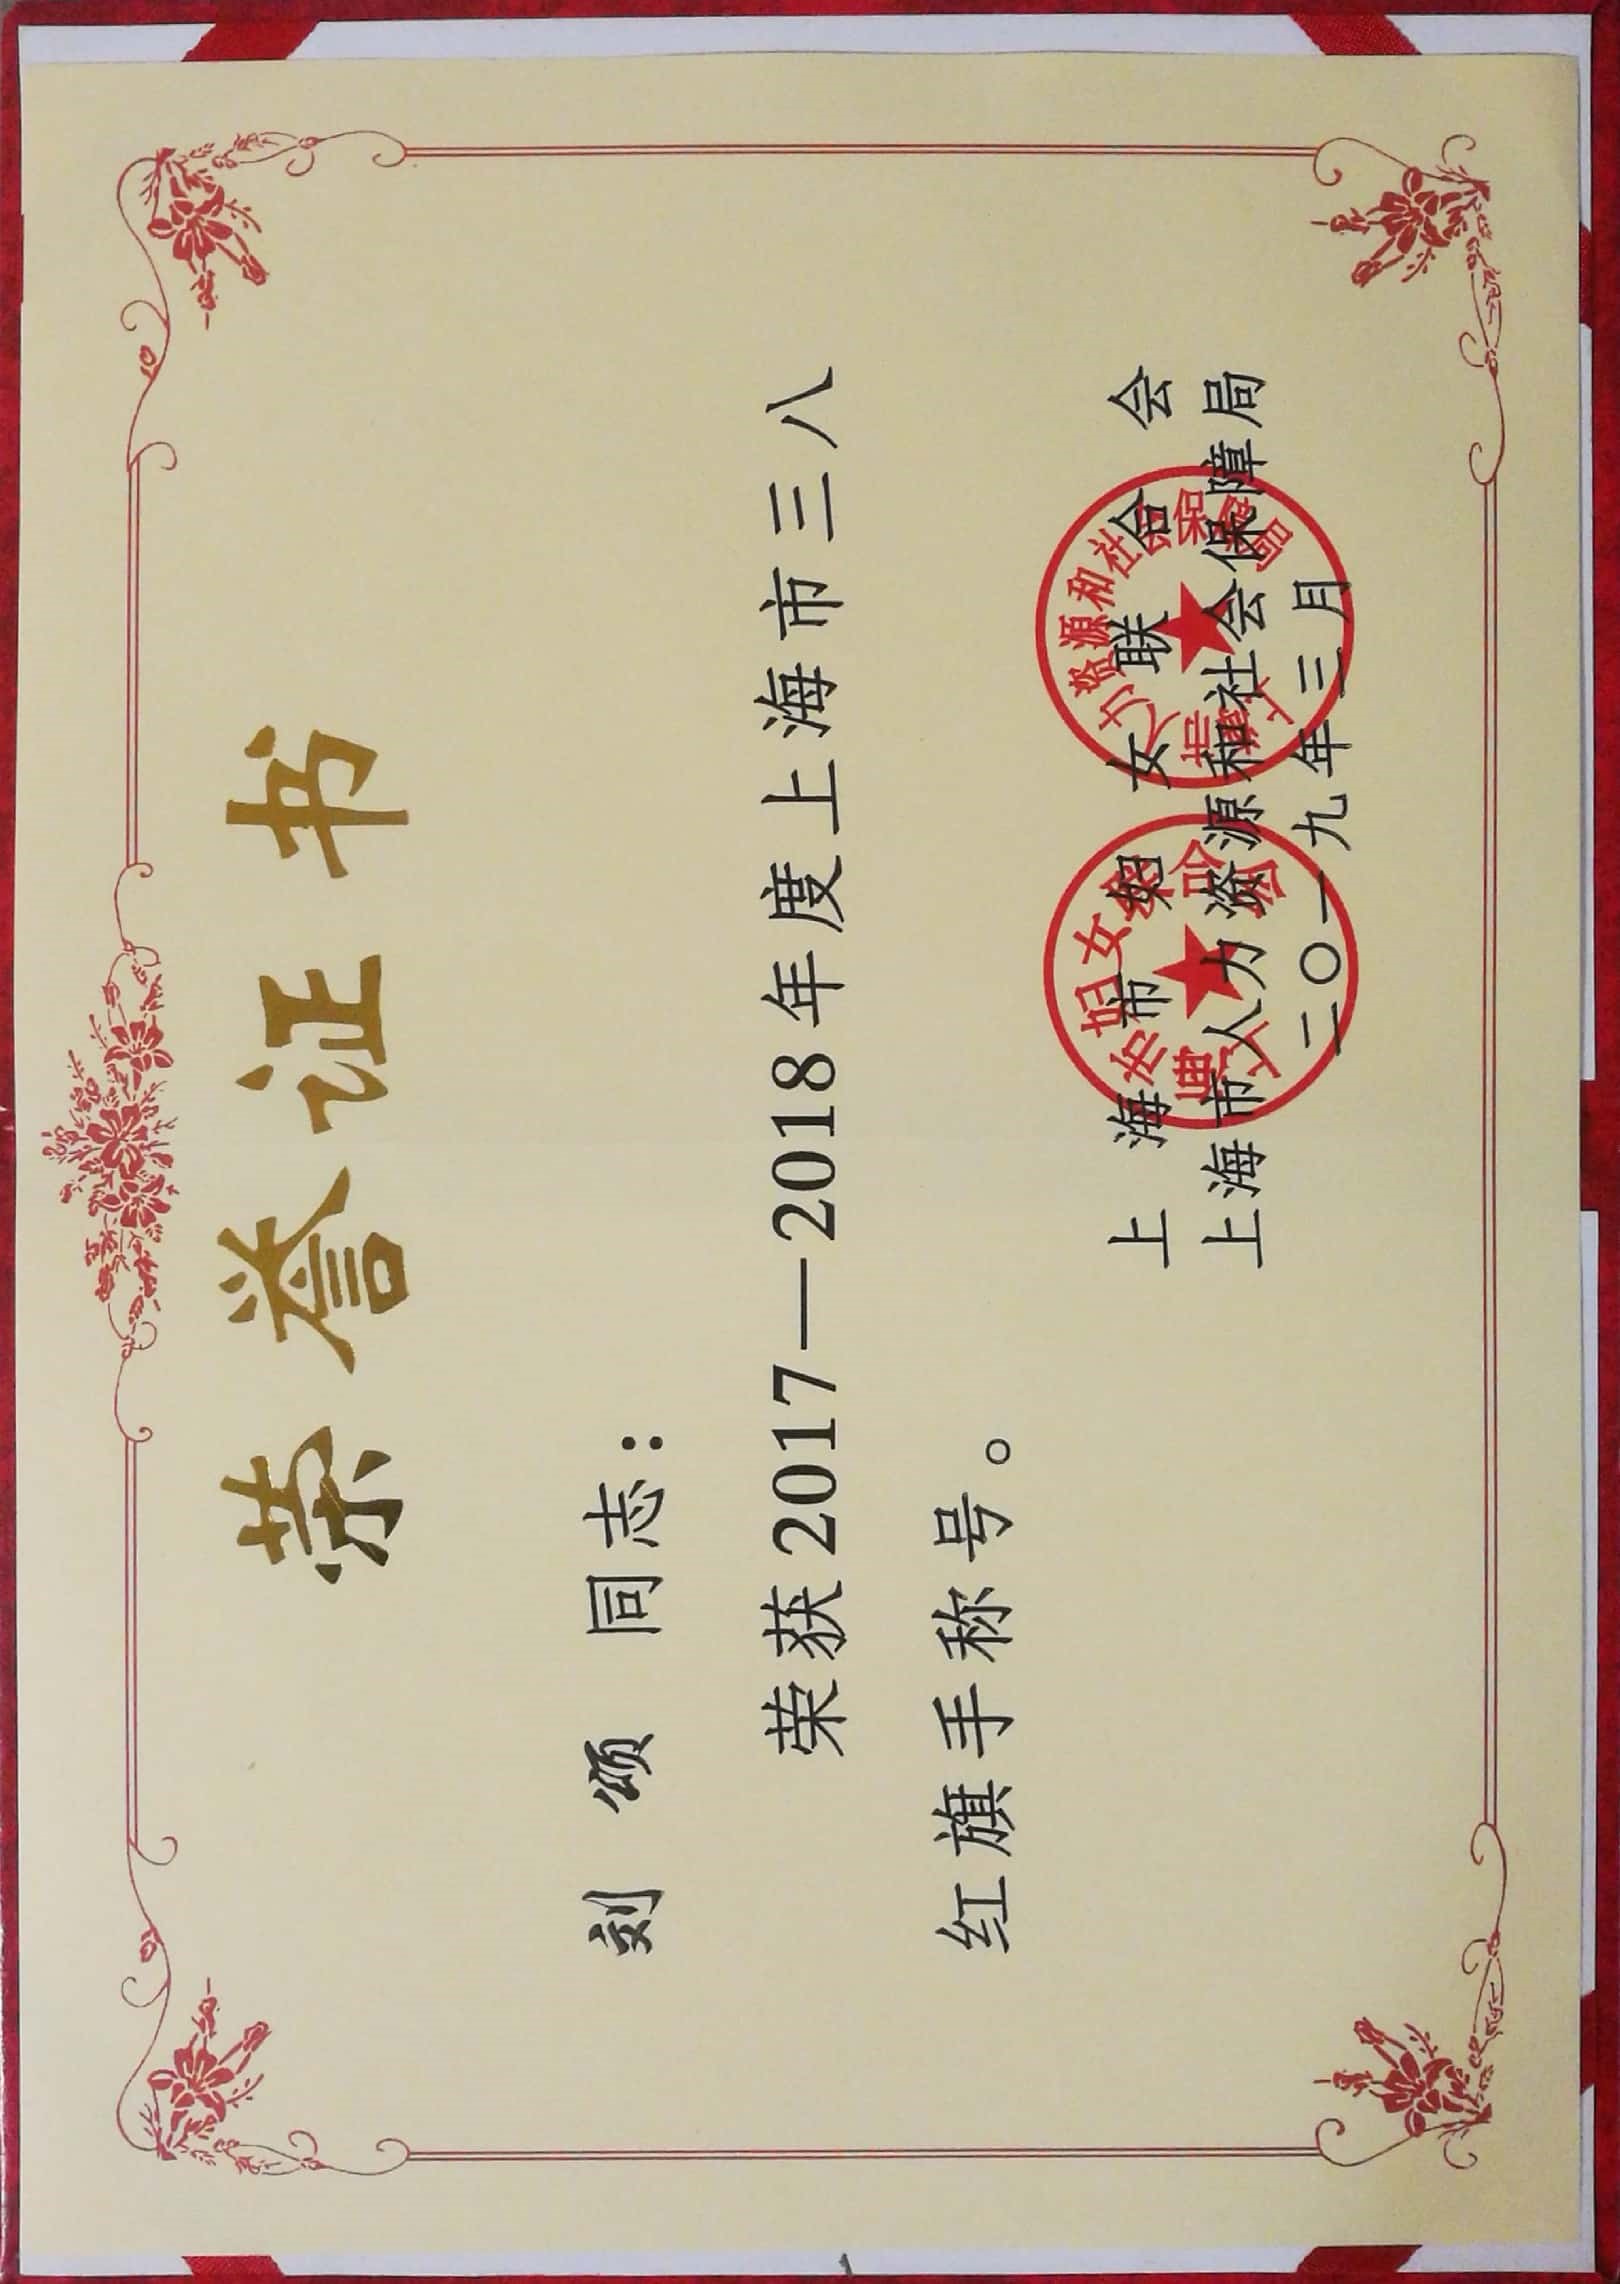 荣誉证书
刘 颂 同志：
荣获2017—2018年度上海市三八
红旗手称号。
上海市妇女联合会
上海市人力资源和社会保障局
二〇一九年三月
上海市妇女联合会
上海市人力资源和社会保障局